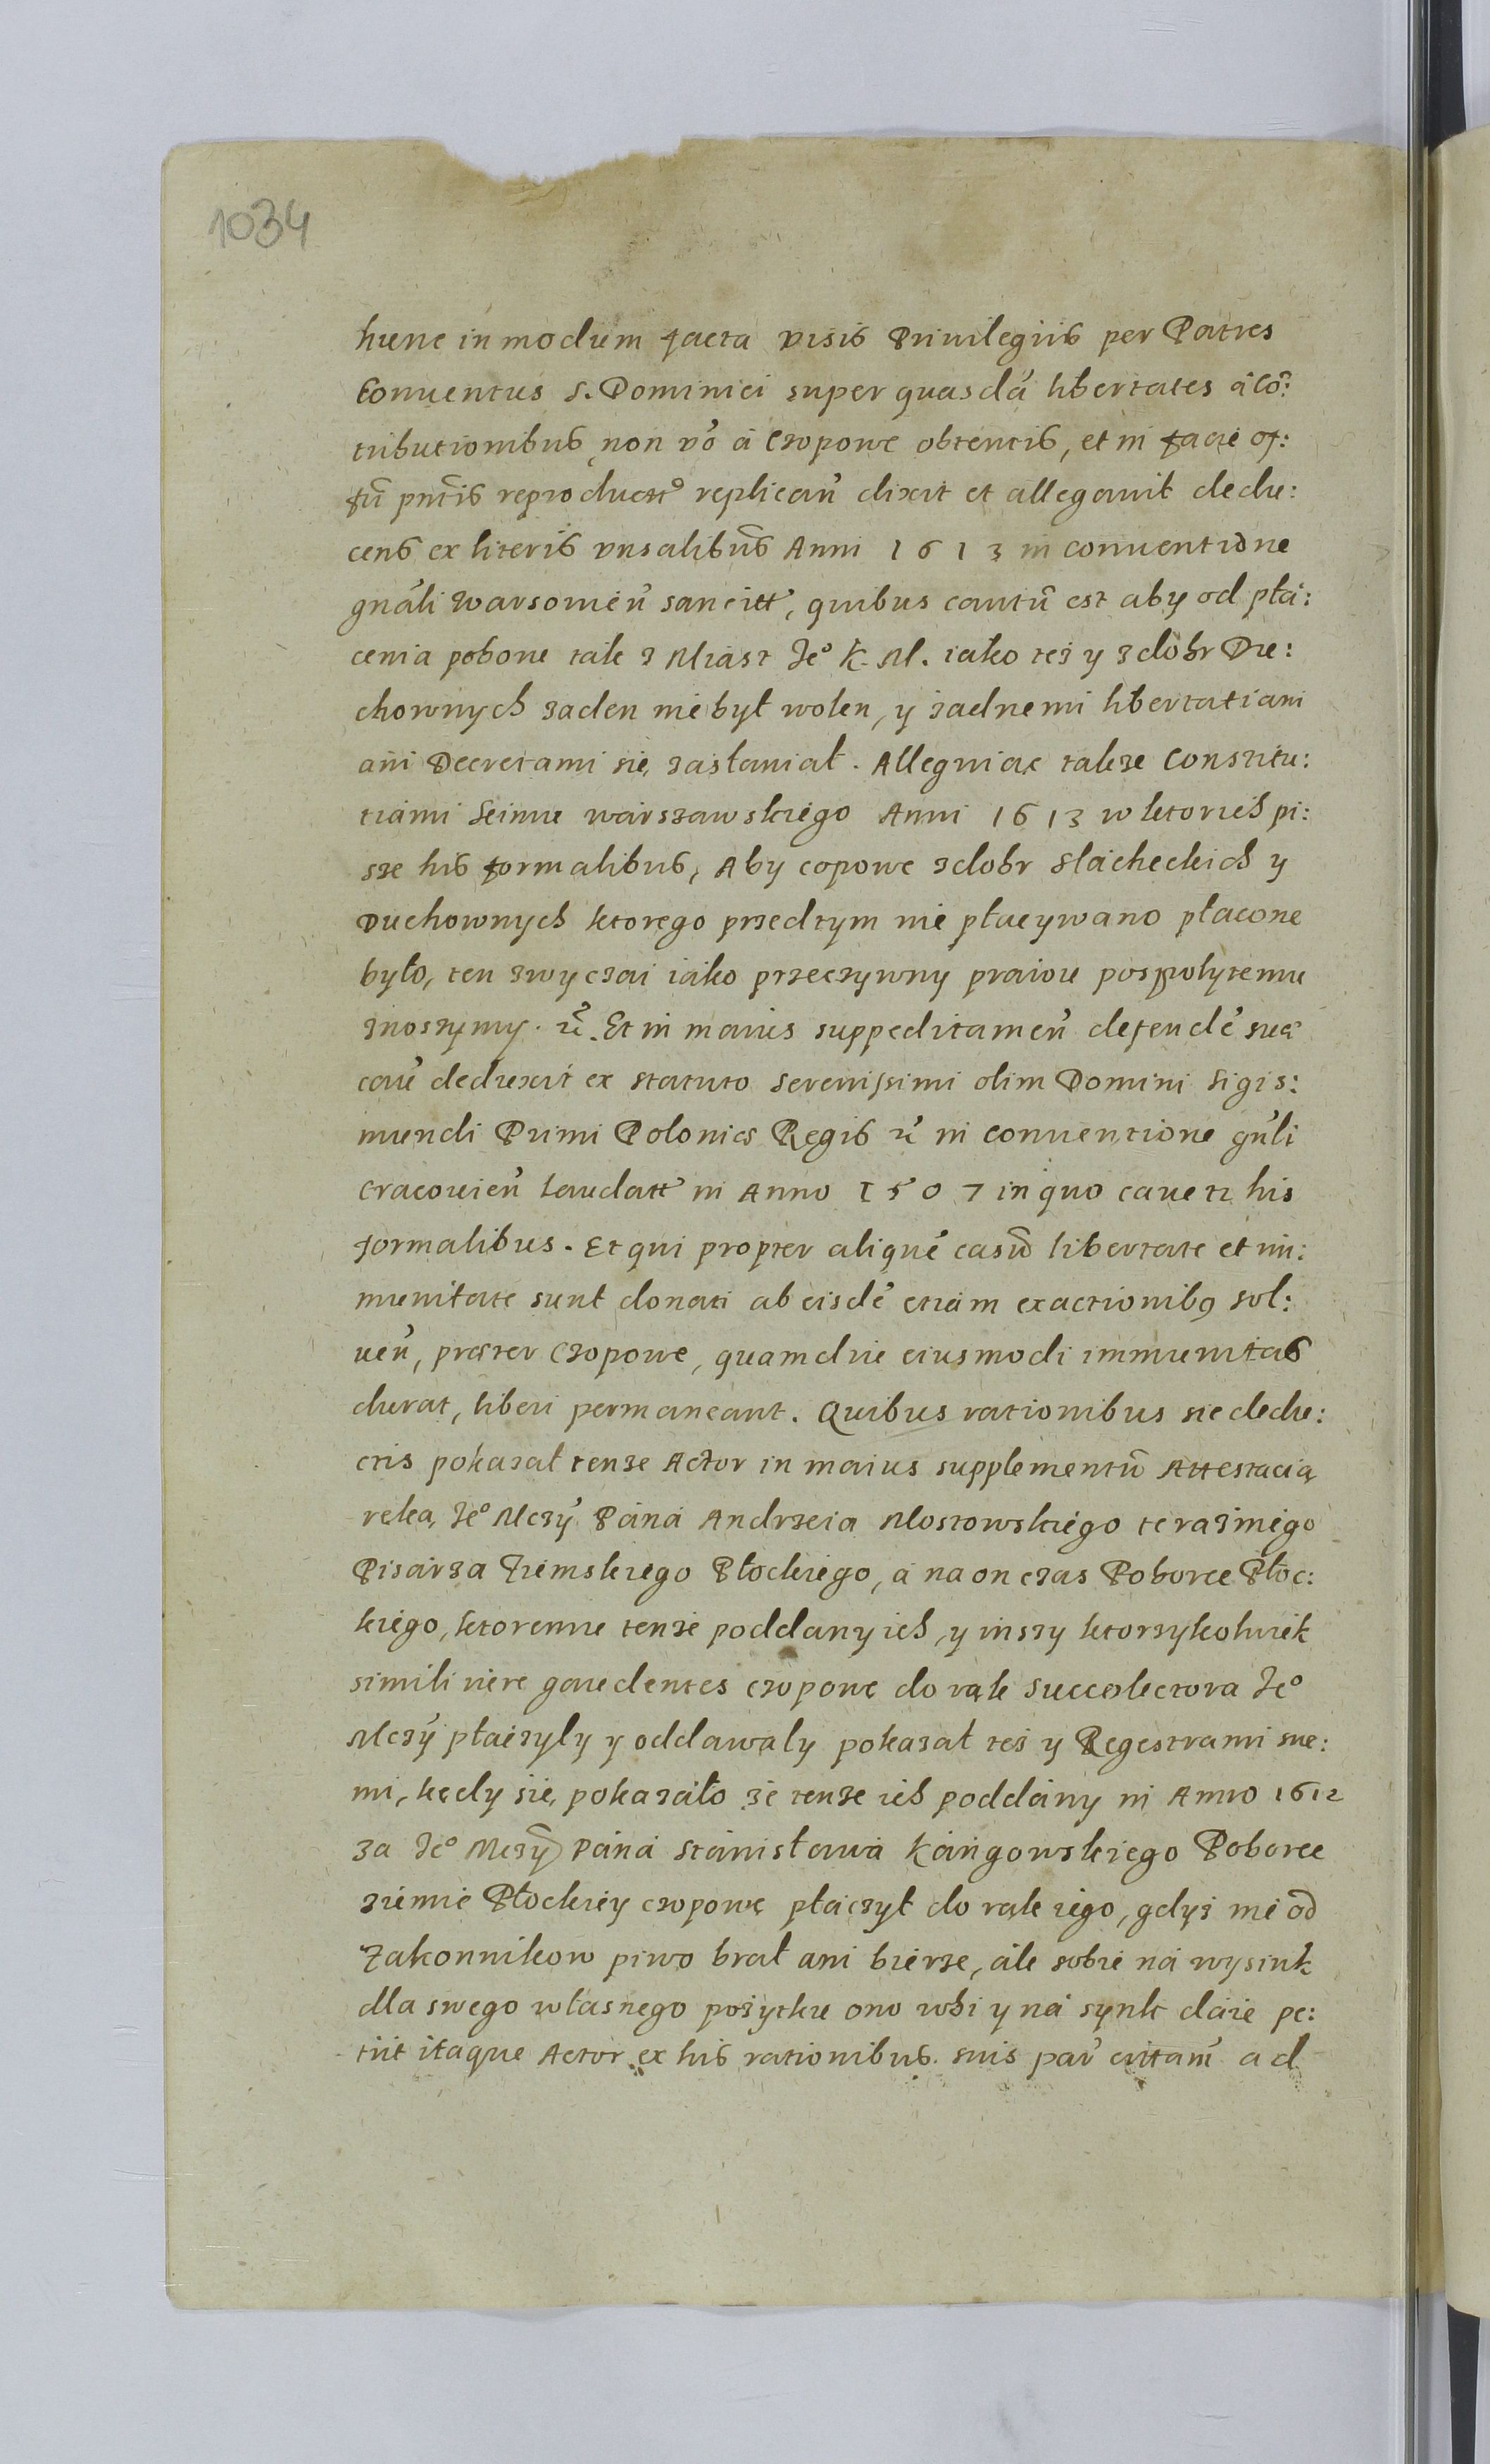 1034
hunc in modum facta visis Priuilegiis per Patres
Conuentus S. Dominici super quasdā libertates à cō:
tributionibus non vō a Czopowe obtentis, et in facie of:
fū pntis reproduct replicań dixit et allegauit dedu:
cens ex literis vnsalibus Anni 1613 in conuentione
gnāli warsouień sancitt, quibus cautū est aby od płá:
cenia pobone tak z Miast Je° K. M. iako też y z dobr Du:
chownych zaden nie był wolen, y żadnemi libertatiami
ani Decretami się zasłaniał. Alleguiąc takze Constitu:
tiami Seimu warszawskiego Anni 1613 w ktorich pi:
sze his formalibus, Aby copowe z dobr Slacheckich y
Duchownych ktorego przedtym nie płacywano płacone
było, ten zwyczai iáko przeczywny prawu pospolytemu
znoszymy. &. Et in maius suppeditameń defendē suā
caū deduxit ex statuto Serenissimi olim Domini Sigis:
mundi Primi Poloniæ Regis & in conuentione gn̄li
Cracouień laudatt in Anno 1507 in quo cauetr his
formalibus. Et qui propter aliquē casū libertate et im:
munitate sunt donati ab eisdē etiam exactionibus sol:
ueń, præter Czopowe, quamdiu eiusmodi immunitas
durat, liberi permaneant. Quibus rationibus sic dedu:
ctis pokazał tenze Actor in maius supplementū Attestacią
ręką Je° Mczy Páná Andrzeia Mostowskiego teraźniego
Pisárza Ziemskiego Płockiego, á na on czas Poborce Płoc:
kiego, ktoremu tenże poddany ich, y inszy ktorzykolwiek
simili iure gaudentes czopowe do rąk Succollectora Je°
Mczy płáczyly y oddawaly pokazał też y Regestrami swe:
mi, kędy się pokazáło że tenze ich poddány in Anno 1612
za Je° Mczy Páná Stánisławá Kángowskiego Poborce
ziemie Płockiey czopowe płáczył do rąk iego, gdyż nie od
Zakonnikow piwo brał ani bierze, ále sobie ná wysink
dla swego własnego pożytku ono robi y ná synk dáie pe:
tiit itaque Actor ex his rationibus suis pań ad